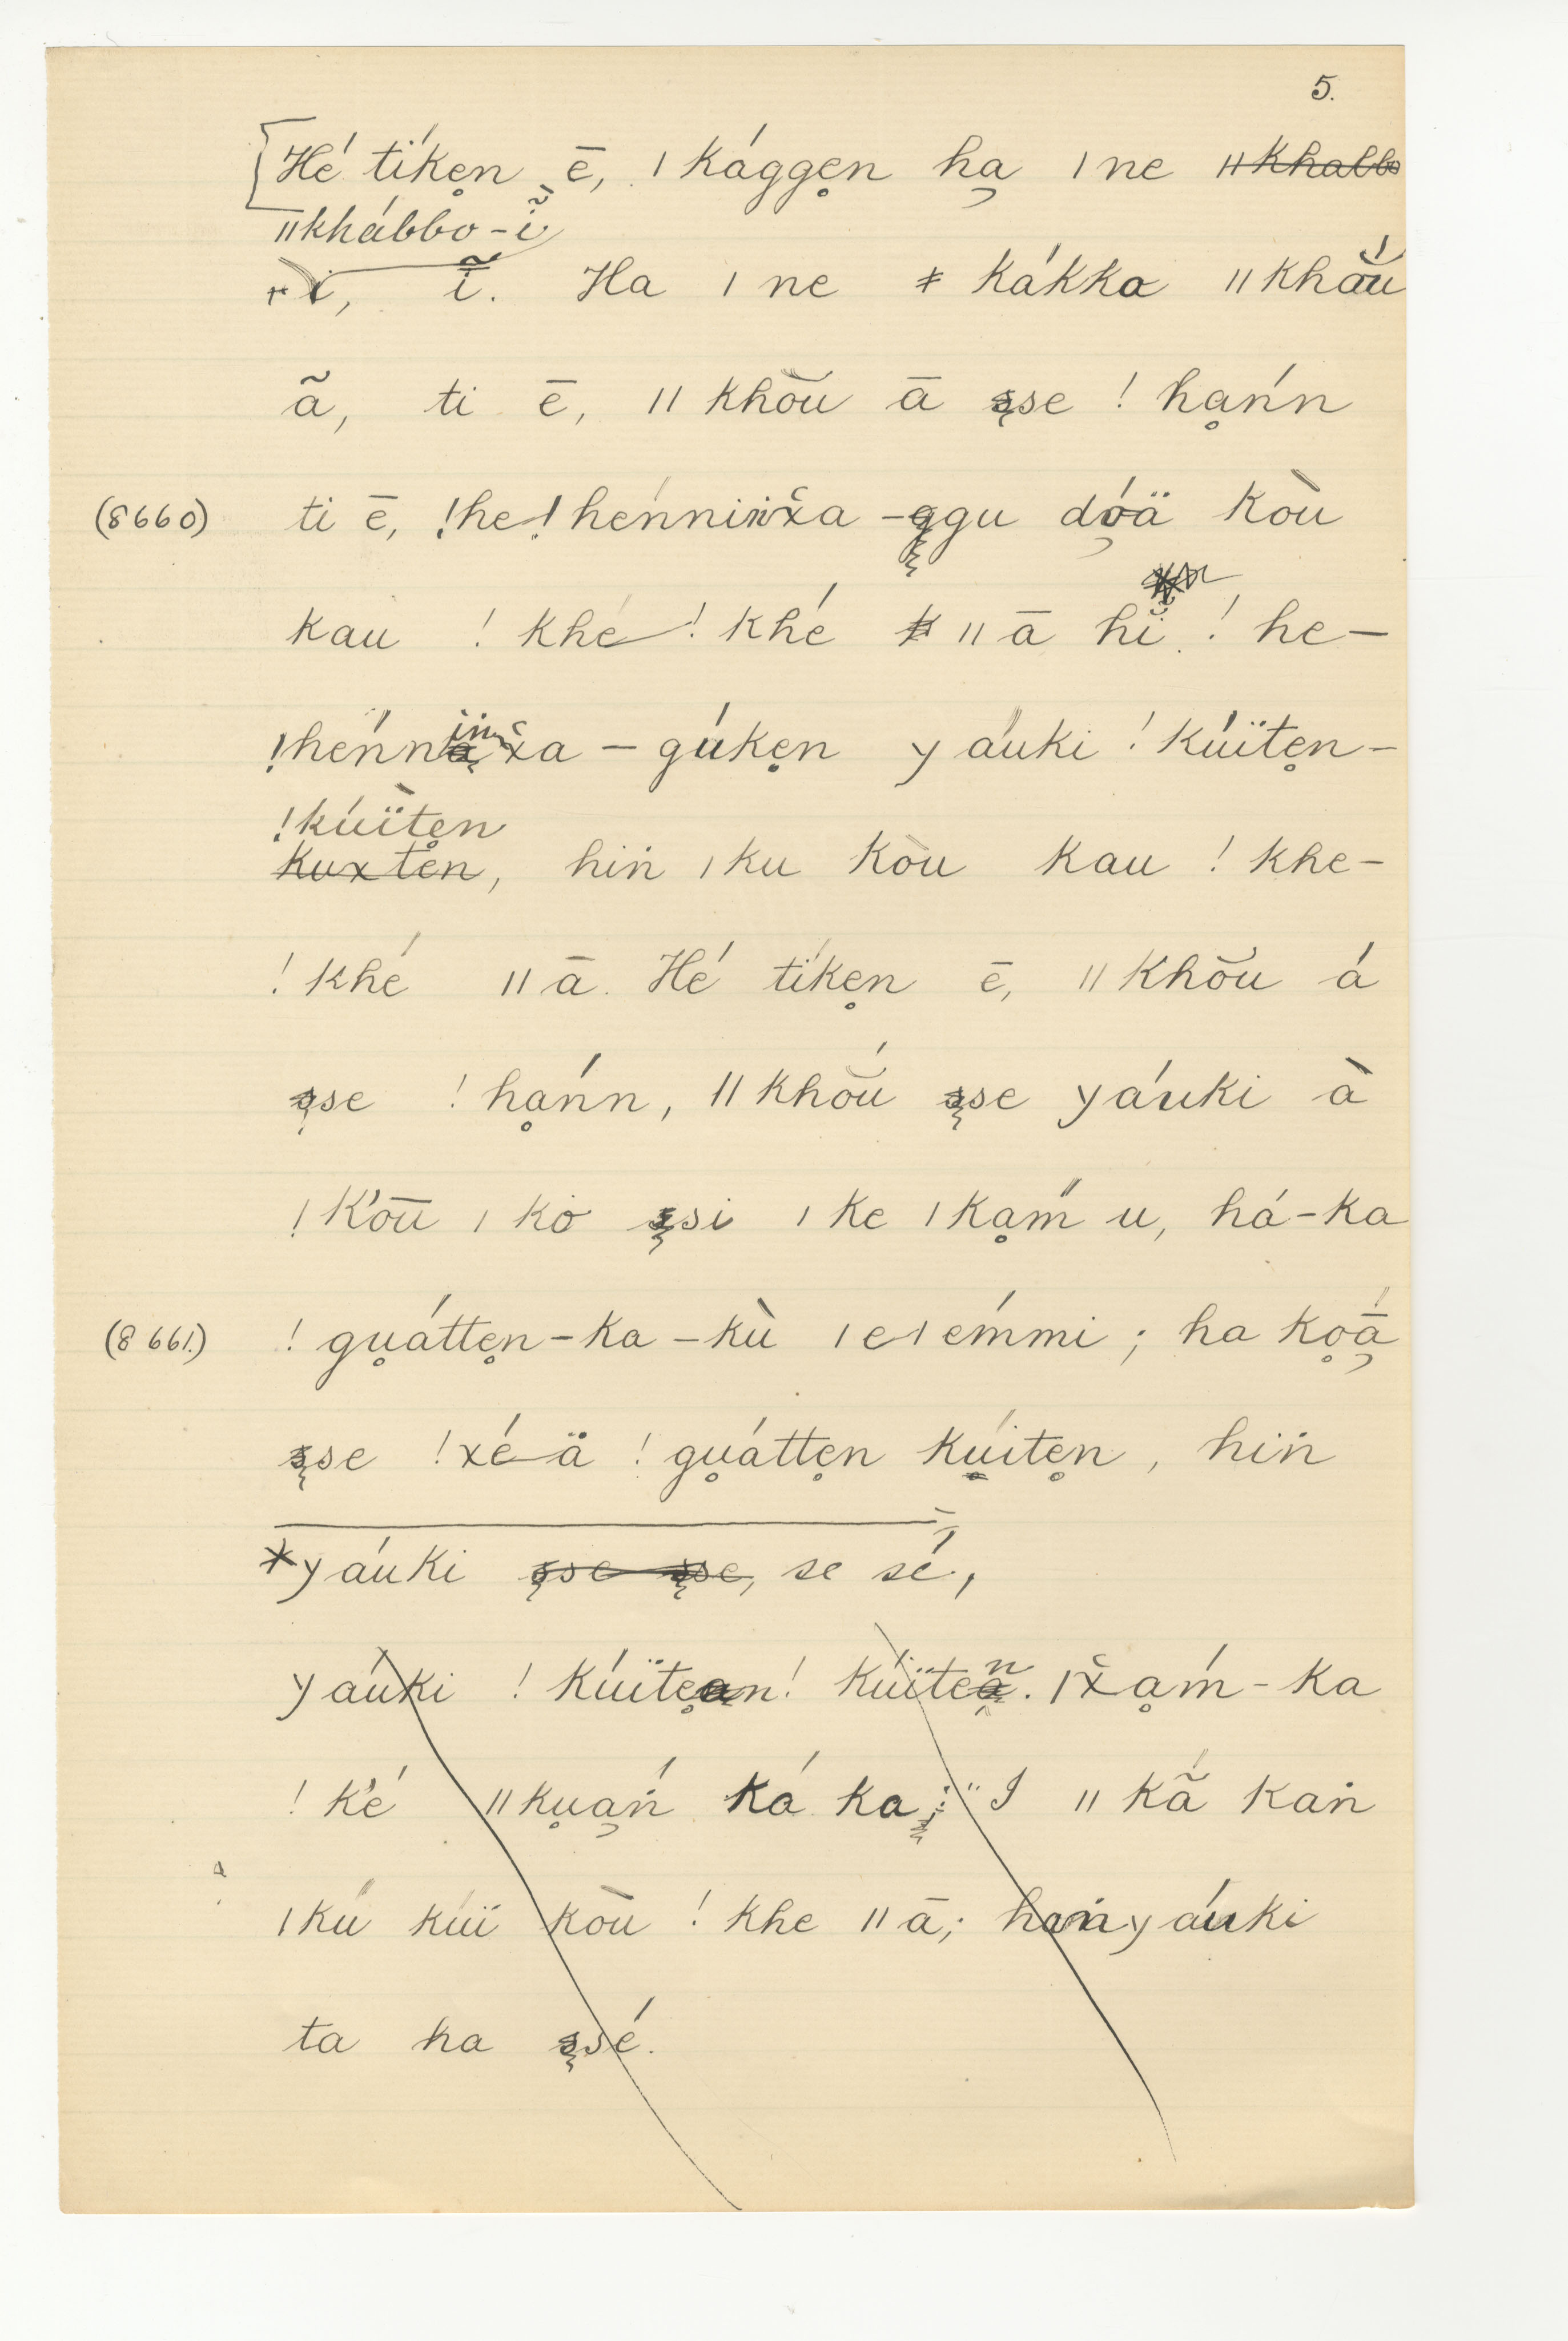 5.
Hé tíken̥ ē, ǀ kággen̥ ha̡ ǀ ne ǁ khabbo
ǁkhábbo-ĩ̀
i, ĩ. Ha ǀ ne ǂ kákka ǁ khắu
ã, ti ē, ǁ khŏ̀u ā se ! hḁńn
(8660) ti ē, !he-!hénninx̆a-ggu dó̡ä kòu
kau ! khé-! khé ǁ ā hĭ ! he-
!hénninx̆a-gúken̥ y áuki ! kúïten̥-
!kúïten̥
kuxten, hiṅ ǀ ku kòu kau ! khe-
! khé ǁ ā. Hé tíken̥ ē, ǁ khŏ̀u á
se ! hḁńn, ǁ khŏ́u se yáuki à
ǀ K'ōu ǀ ko si ǀ ke ǀ kḁḿ u, há-ka
(8661.) ! gu̥átten̥-ka-kù ǀ e-ǀ émmi; ha ko̥ā̡́
se !xé-ä ! gu̥átten̥ ku̥íten̥, hiṅ
*yáuki se se, se sé,
yáuki ! kúïten̥! kúïten. ǀx̆ḁḿ-ka
! k'é ǁku̥a̡ṅ́ ká ka; "I ǁ kã́ kaṅ
ǀ kú kúï kòu ! khe ǁ ā; haṅ yáuki
ta ha sé.